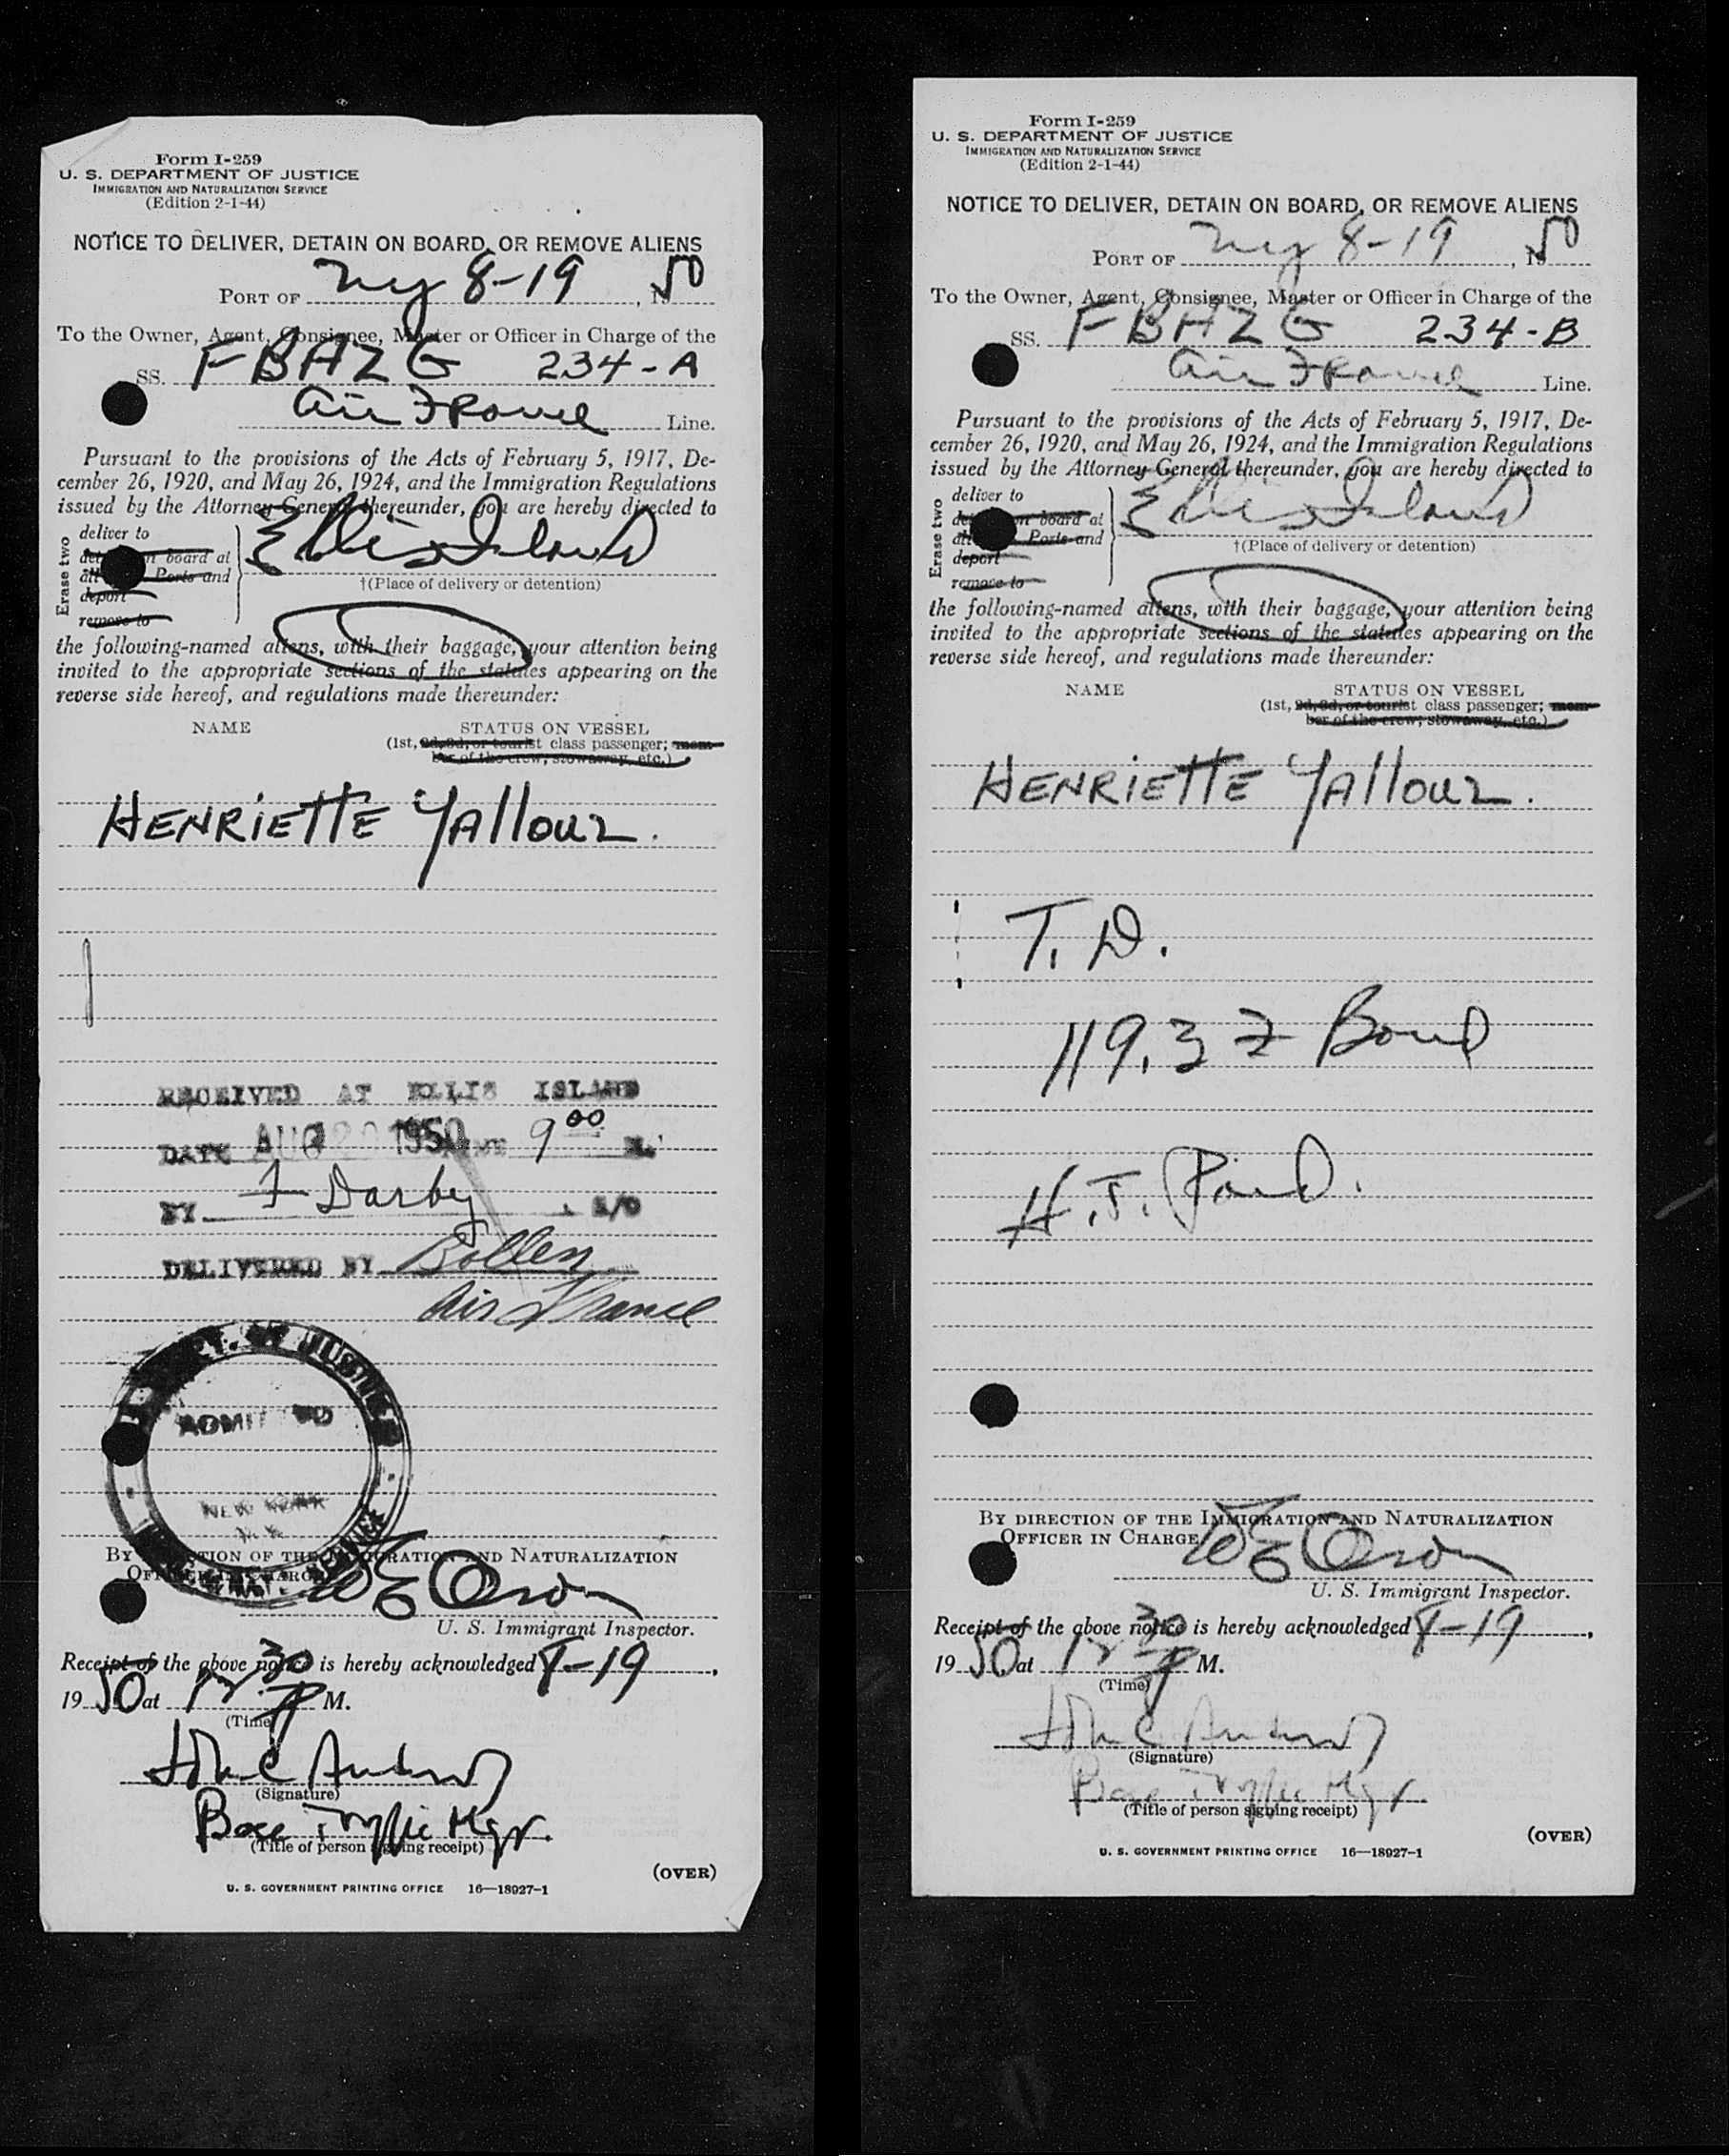 Form I-259
U. S. DEPARTMENT OF JUSTICE
IMMIGRATION AND NATURALIZATION SERVICE
(Edition 2-1-44)
NOTICE TO DELIVER, DETAIN ON BOARD, OR REMOVE ALIENS
PORT OF NY 8-19, 1950
To the Owner, Agent, Consignee, Master or Officer in Charge of the
SS. FBAZG 234-A
Air France Line.
Pursuant to the provisions of the Acts of February 5, 1917, De-
cember 26, 1920, and May 26, 1924, and the Immigration Regulations
issued by the Attorney General thereunder, you are hereby directed to
Erase two
deliver to
on board at
Ports and
deport
remove to
Ellis Island
†(Place of delivery or detention)
the following-named aliens, with their baggage, your attention being
invited to the appropriate sections of the statutes appearing on the
reverse side hereof, and regulations made thereunder:
NAME STATUS ON VESSEL
(1st, 2d, 3d, or tourist class passenger; mem-
ber of the crew; stowaway, etc.)
HENRIETTE YAllouz.
RECEIVED AT ELLIS ISLAND
DATE AUG 20 1950 TIME 9 00 M.
BY F Darby
DELIVERED BY Bollen
Air France
DEPT. OF JUSTICE
ADMITTED
NEW YORK
N.Y.
BY DIRECTION OF THE IMMIGRATION AND NATURALIZATION
OFFICER IN CHARGE
U. S. Immigrant Inspector.
Receipt of the above notice is hereby acknowledged 8-19,
1950 at 12 30 P M.
(Time)
(Signature)
Base Traffic Mgr.
(Title of person signing receipt)
(OVER)
U. S. GOVERNMENT PRINTING OFFICE 16—18927-1
Form I-259
U. S. DEPARTMENT OF JUSTICE
IMMIGRATION AND NATURALIZATION SERVICE
(Edition 2-1-44)
NOTICE TO DELIVER, DETAIN ON BOARD, OR REMOVE ALIENS
PORT OF NY 8-19, 1950
To the Owner, Agent, Consignee, Master or Officer in Charge of the
SS. FBAZG 234-B
Air France Line.
Pursuant to the provisions of the Acts of February 5, 1917, De-
cember 26, 1920, and May 26, 1924, and the Immigration Regulations
issued by the Attorney General thereunder, you are hereby directed to
Erase two
deliver to
on board at
Ports and
deport
remove to
Ellis Island
†(Place of delivery or detention)
the following-named aliens, with their baggage, your attention being
invited to the appropriate sections of the statutes appearing on the
reverse side hereof, and regulations made thereunder:
NAME STATUS ON VESSEL
(1st, 2d, 3d, or tourist class passenger; mem-
ber of the crew; stowaway, etc.)
HENRIETTE YAllouz.
T. D.
119.3 Bond
BY DIRECTION OF THE IMMIGRATION AND NATURALIZATION
OFFICER IN CHARGE
U. S. Immigrant Inspector.
Receipt of the above notice is hereby acknowledged 8-19,
1950 at 12 30 P M.
(Time)
(Signature)
Base Traffic Mgr.
(Title of person signing receipt)
(OVER)
U. S. GOVERNMENT PRINTING OFFICE 16—18927-1